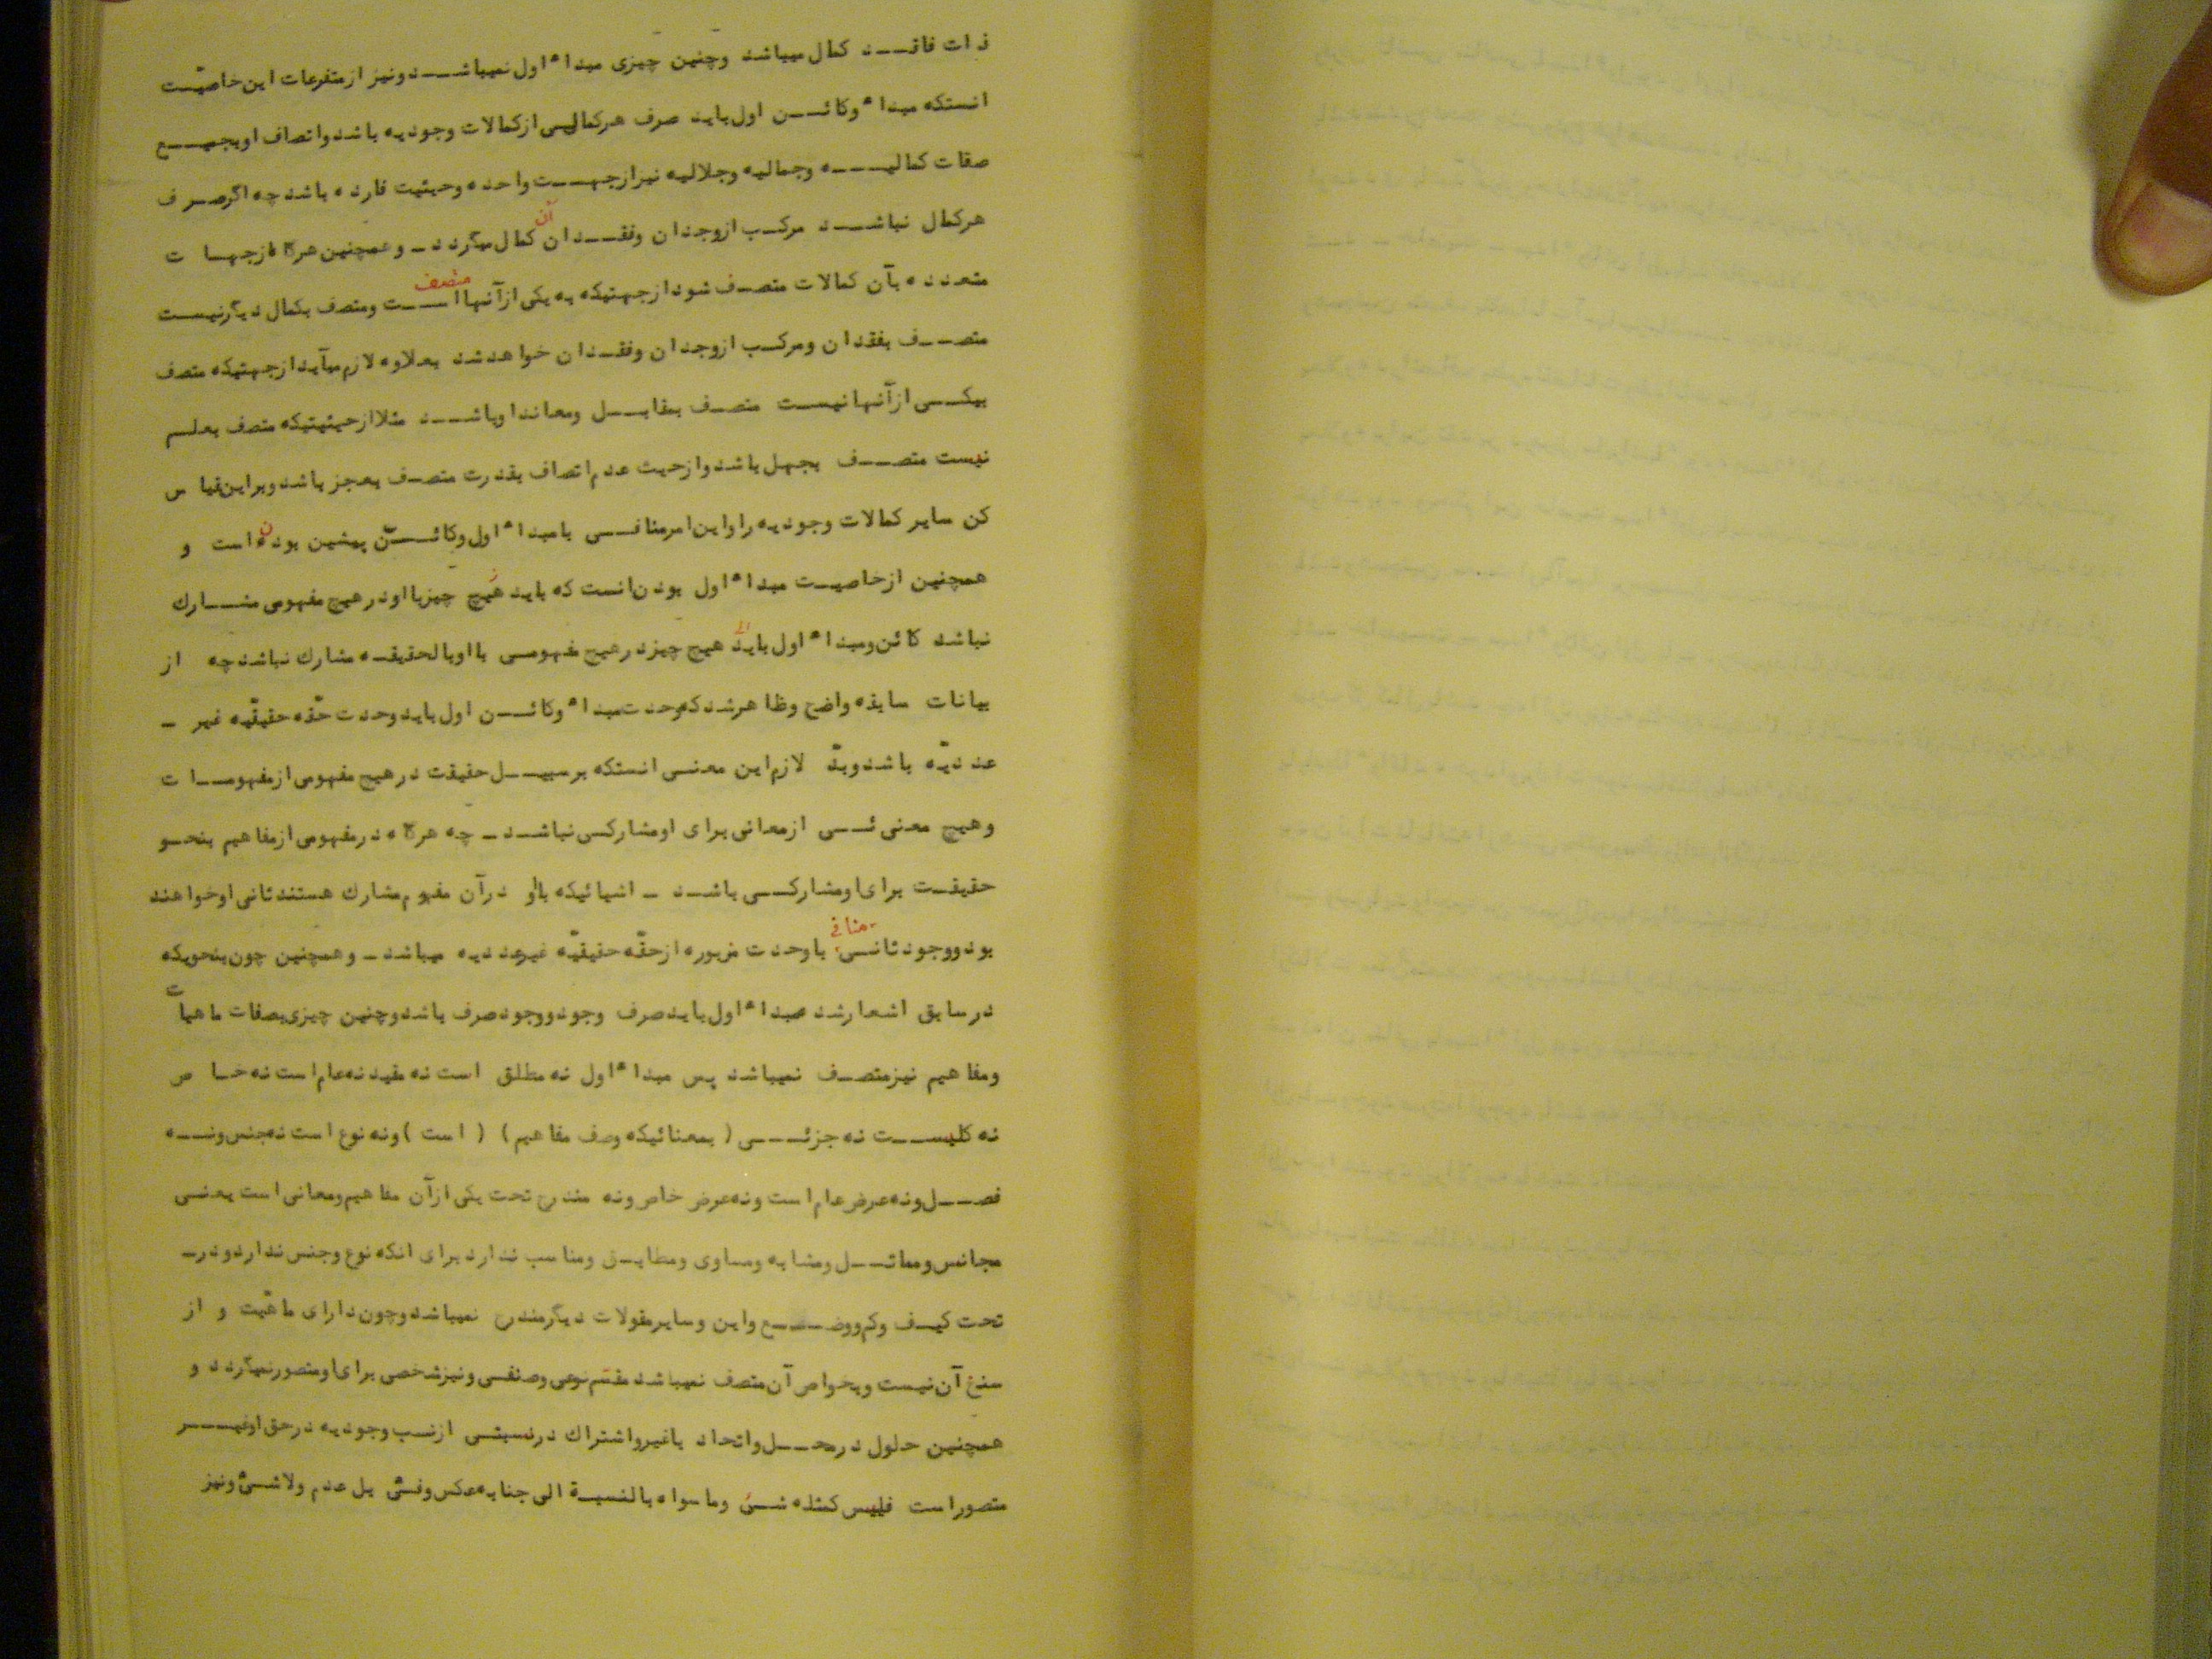 ذات فاقـــد کمال میباشد وچنین چیزی مبداء اول نمیباشــد ونیز از متفرعات این خاصیّت
انستکه مبداء وکائــن اول باید صرف هرکمالی از کمالات وجودیه باشد واتصاف اوبجمیــع
صفات کمالیــه وجمالیه وجلالیه نیز ازجهــت واحده وحیثیت فارده باشد چه اگر صرف
هرکمال نباشــد مرکـب ازوجدان وفقــدان آن کمال میگردد ـ وهمچنین هرگاه ازجهات
متعدده بآن کمالات متصـف شود ازجهتیکه به یکی ازآنها متصف اســت ومتصف بکمال دیگر نیست
متصــف بفقدان ومرکـب ازوجدان وفقـدان خواهد شد بعلاوه لازم میآید ازجهتیکه متصف
بیکــی ازآنها نیسـت متصـف بمقابــل ومعاند او باشــد مثلا ازحیثیتیکه متصف بعلـم
نیست متصــف بجهل باشد وازحیث عدم اتصاف بقدرت متصـف بعجز باشد وبراین قیاس
کن سایر کمالات وجودیه را واین امر منافــی با مبداء اول وکائــن پیشین بودن است و
همچنین ازخاصیـت مبداء اول بودن انست که باید هیچ چیز با او در هیچ مفهومی مشــارك
نباشد کائن ومبداء اول باید هیچ چیز در هیچ مفهومـی با او بالحقیقـه مشارك نباشد چه از
بیانات سابقه واضح وظاهر شد که وحدت مبداء وکائــن اول باید وحدت حقّه حقیقیّه غیر ـ
عددیّه باشد وبدّ لازم این معنـی انستکه بر سبیــل حقیقت در هیچ مفهومی از مفهومــات
وهیچ معنی ئــی ازمعانی برای او مشارکی نباشــد ـ چه هرگاه در مفهومی از مفاهیم بنحـو
حقیقـت برای او مشارکــی باشــد ـ اشیائیکه با او در آن مفهوم مشارك هستند ثانی او خواهند
بود ووجود ثانـی منافی با وحدت مزبوره ازحقّه حقیقیّه غیر عددیه میباشد ـ وهمچنین چون بنحویکه
در سابق اشعار شد مبداء اول باید صرف وجود ووجود صرف باشد وچنین چیزی بصفات ماهیات
ومفاهیم نیز متصـف نمیباشد پس مبداء اول نه مطلق است نه مقید نه عام است نه خـاص
نه کلیســت نه جزئــی ( بمعنائیکه وصف مفاهیم ) ( است ) ونه نوع است نه جنس ونــه
فصــل ونه عرض عام است ونه عرض خاص ونه مندرج تحت یکی ازآن مفاهیم ومعانی است یعنـی
مجانس ومماثــل ومشابه ومساوی ومطابـق ومناسب ندارد برای انکه نوع وجنس ندارد ودر ـ
تحت کیـف وکم ووضــع واین وسایر مقولات دیگر مندرج نمیباشد وچون دارای ماهیّت و از
سنخ آن نیست وبخواص آن متصف نمیباشد مقسّم نوعی وصنفـی ونیز شخصی برای او متصور نمیگردد و
همچنین حلول در محــل واتحاد با غیر واشتراك در نسبتـی از نسب وجودیه در حق او غیــر
متصور است فلیس کمثله شـئ وما سواه بالنسبـة الی جنابه عکس وفـئ بل عدم ولا شـئ ونیز